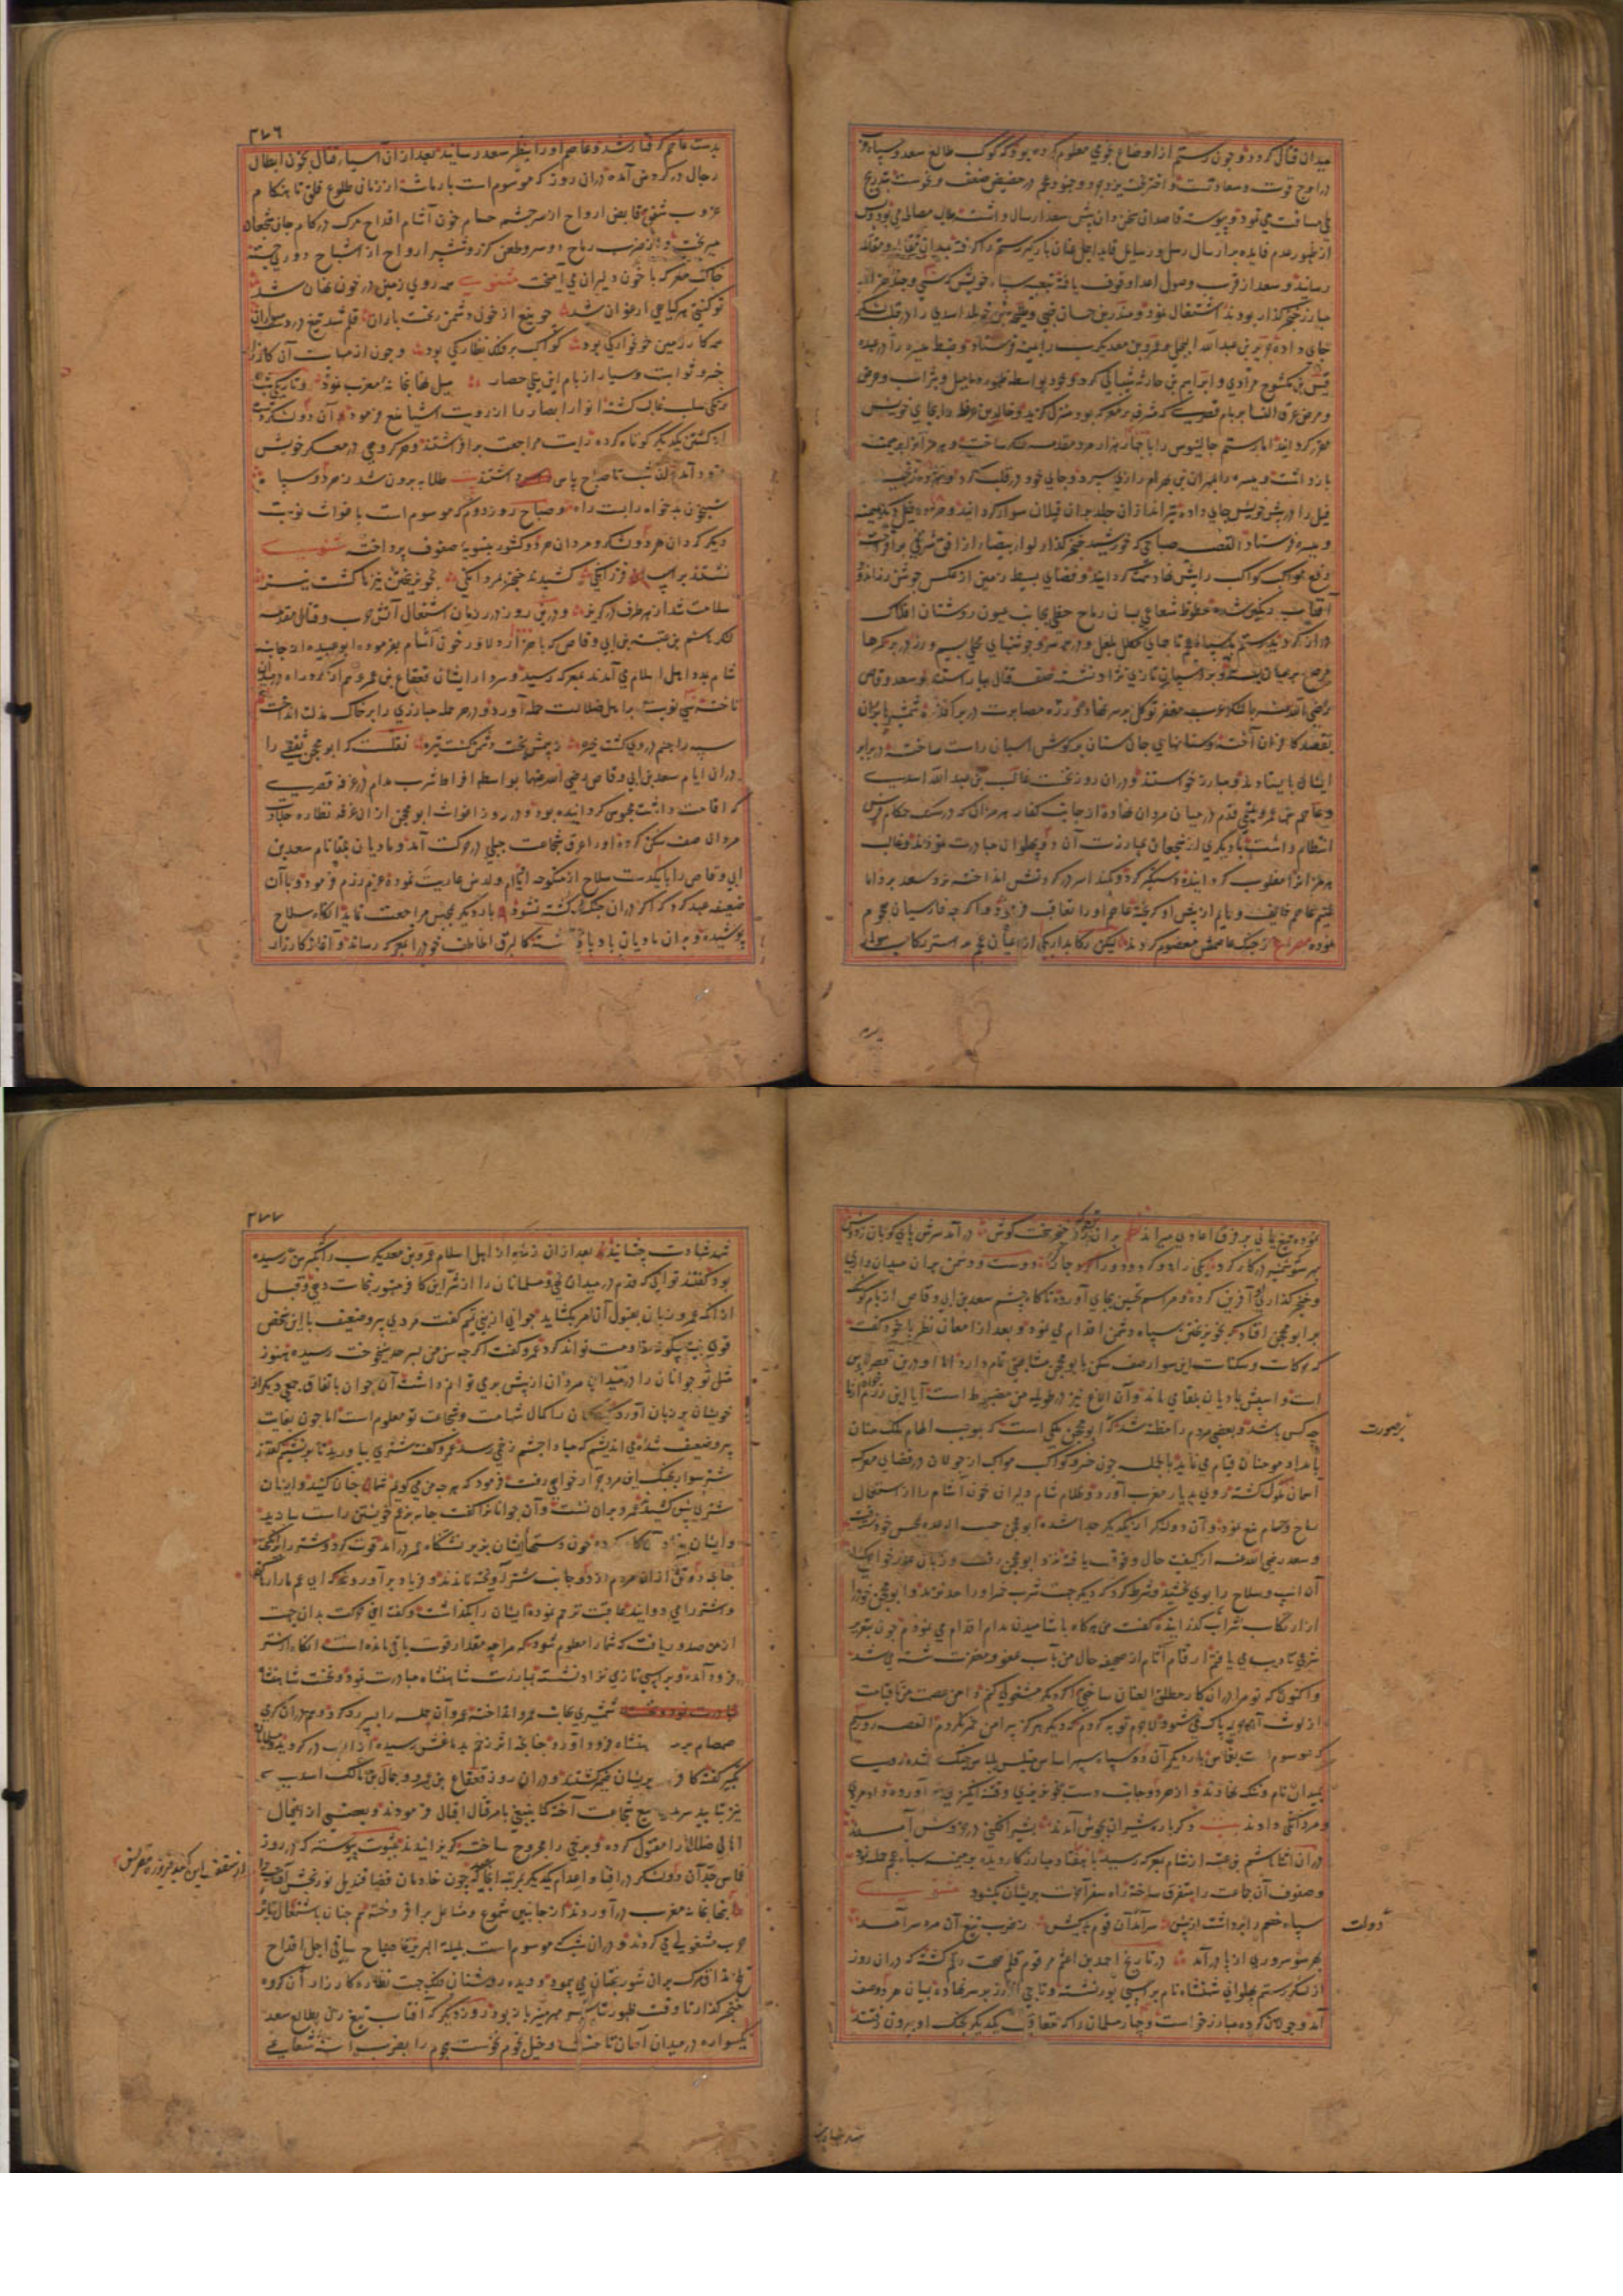 میدان قتال کردد و چون رستم از اوضاع نجومی معلوم کرده بود که کوکب طالع سعد و سپاه
در اوج قوت و سعادتست و اختر بخت یزدجرد و جنود عجم در حضیض ضعف و نحوست بتدریج
طی مسافت می نمود و پیوسته قاصدان سخن دان پیش سعد ارسال داشته طالب مصالحه می بود و پس
از ظهور عدم فایده بر ارسال رسل و رسایل قاید اجل عنان بارگیر رستم را گرفته بمیدان مقاتله
رسانید و سعد از قرب وصول اعدا وقوف یافته بتعبیه سپاه خویش که
مبارز خنجرگذار بودند اشتغال نمود و منذر بن حسان ضبی و طلیحه بن خویلد اسدی را در قلب لشکر
جای داده جریر بن عبد الله البجلی و عمرو بن معدیکرب را بمیمنه فرستاد و ضبط میسره را در عهده
قیس بن مکشوح مرادی و ابراهیم بن حارثه شیبانی کرد و خود بواسطه ظهور دمامیل و بثرات و عرض
مرض عرق النسا بر بام قصری که مشرف بر معرکه بود منزل گزید و خالد بن عرفطه را بجای خویش
مقرر گردانید اما رستم جالینوس را با چهار هزار مرد مقدمه لشکر ساخت و هرمزان را بر میمنه
بازداشت و میسره را بمهران بن بهرام رازی سپرد و جای خود در قلب کرد
فیل را در پیش خویش جای داده تیراندازان جلد بران فیلان سوار گردانید
و میسره فرستاد القصه صباحی که خورشید خنجرگذار لوای بیضا از افق شرقی برافراخت
دفع مواکب کواکب را پیش نهاد همت گردانید و فضای بسیط زمین از عکس جوشن
آفتاب دیگر شده خطوط شعاعی بسان رماح خطی بجانب عیون روشنان افلاک
دراز گردید رستم با سپاه عجم تاجهای مکلل بلعل و در بر سر و جوشنهای محلی بسیم و زر در بر کمرها
مرصع بر میان بسته و بر اسپان تازی نژاد نشسته صف قتال بیاراستند و سعد وقاص
رضی الله عنه با لشکر عرب مغفر توکل بر سر نهاده و زره مصابرت در بر افکنده شمشیرها بران
بقصد کافران آخته و سنانهای جان ستان بر گوش اسپان راست ساخته در برابر
ایشان بایستادند و مبارز خواستند و دران روز نخست غالب بن عبد الله اسدی
و عاصم بن عمرو تمیمی قدم در میان مردان نهاده از جانب کفار هرمزان که در سلک حکام فرس
انتظام داشت با دیگری از شجعان بمبارزت آن دو پهلوان مبادرت نمودند و غالب
هرمزان را مغلوب گردانیده دستگیر کرد و کمند اسر در گردنش انداخته نزد سعد برد اما
غنیم عاصم خایف و نادم از پیش او گریخته عاصم او را تعاقب فرمود و اگرچه فارسیان هجوم
نموده از جنگ عاصمش معصوم کردند لیکن رکابداریکی از اعیان عجم بر استر رکاب سوار
۳۷۶
بدست عاصم گرفتار شد و عاصم او را بنظر سعد رسانید بعد ازان آسیای قتال بخون ابطال
رجال در گردش آمده دران روز که موسوم است بارماث از زمان طلوع فلق تا هنگام
غروب شفق قابض ارواح از سرچشمه حسام خون آشام اقداح مرگ در کام جان شجعان
میریخت و از ضرب رماح و سر و طعن گرز و شمشیر ارواح از اشباح دوری جسته
خاک معرکه با خون دلیران می آمیخت مثنوی همه روی زمین در خون نهان شد
تو گفتی هر گیاهی ارغوان شد چو تیغ از خون دشمن ریخت باران قلم شد تیغ در دست سواران
همه کار زمین خونخوارگی بود کواکب بر فلک نظارگی بود و چون از مهابت آن کارزار
خسرو ثوابت و سیار از بام این نیلی حصار میل نهانخانه مغرب نمود و تاریکی شب
زنگی سلب نقاب گشته انوار ابصار را از رویت اشیا منع فرمود آن دو لشکر دست
از کشتن یکدیگر کوتاه کرده رایت مراجعت برافراشتند و هر گروهی در معسکر خویش
فرود آمده آن شب تا صباح پاس داشتند بیت طلایه برون شد ز هر دو سپاه
شبیخون بدخواه را بست راه و صباح روز دوم که موسوم است باغواث نوبت
دیگر گردان هر دو لشکر و مردان هر دو کشور بتسویه صفوف پرداخته مثنوی
نشستند بر اسپ فرزانگی کشیدند خنجر بمردانگی بخونریختن تیز ناگشت تیز
سلامت شد از هر طرف در گریز و درین روز در زمان اشتعال آتش حرب و قتال مقدمه
لشکر هاشم بن عتبه بن ابی وقاص که با هزار دلاور خون آشام بفرموده ابو عبیده از جانب
شام بمدد اهل اسلام می آمدند بمعرکه رسید و سردار ایشان قعقاع بن عمرو هم از گرد راه در میدان
تاخته سی نوبت بر اهل ضلالت حمله آورد و در هر حمله مبارزی را بر خاک مذلت انداخت
سپه را جنم در روی گشت خیره ز بیمش بخت دشمن گشت تیره نقلست که ابو محجن ثقفی را
دران ایام سعد بن ابی وقاص رضی الله عنهما بواسطه افراط شرب مدام در غرفه قصری
که اقامت داشت محبوس گردانیده بود و در روز اغواث ابو محجن ازان غرفه نظاره جلادت
مردان صف شکن کرده او را عرق شجاعت جبلی در حرکت آمد و مادیان بلقا نام سعد بن
ابی وقاص را با یکدست سلاح از منکوحه ام ولدش عاریت نموده عزم رزم فرمود و باآن
ضعیفه عهد کرد که اگر دران جنگ کشته نشود بار دیگر بمجلس مراجعت نماید آنگاه سلاح
پوشیده و بران مادیان بادپای نشسته کالبرق الخاطف خود را بمعرکه رسانید و آغاز کارزار
نموده تیغ یمانی بر فرق اعادی میراند نظم بران گرد خنجر سخت کوش در آمد سرش پای کوبان ز دوش
بهر سو شتی در کار کرد یکی را دو کرد و دو را چار کرد دوست و دشمن بران میدان داری
و خنجرگذاری آفرین کرده مراسم تحسین بجای آوردند ناگاه چشم سعد بن ابی وقاص از بام کوشک
بر ابو محجن افتاد که بخونریختن سپاه دشمن اقدام می نمود و بعد از امعان نظر با خود گفت
که حرکات و سکنات این سوار صف شکن بابو محجن مشابهتی تمام دارد اما او درین قصر محبوس
است و اسپش بمادیان بلقای ماند و آن الاغ نیز در طویله من مضبوط است آیا این رزم آزما
چه کس باشد و بعضی مردم را مظنه شد که ابو محجن ملکی است که بموجب الهام ملک منان
بامداد مومنان قیام می نماید بالجمله چون خسرو کواکب مواکب از جولان در فضای معرکه
آسمان ملول گشته روی بدیار مغرب آورد و ظلام شام دلیران خون آشام را از استعمال
سلاح و حسام منع نمود و آن دو لشکر از یکدیگر جدا شده ابو محجن حسب الوعده بمحبس خود رفت
و سعد رضی الله عنه از کیفیت حال وقوف یافته نزد ابو محجن رفت و زبان بعذرخواهی گشاد
آن اسپ و سلاح را بوی بخشید و شرط کرد که دیگر جهت شرب خمر او را حد نزند و ابو محجن خود را
از ارتکاب شراب گذرانیده گفت من هرگاه باشامیدن مدام اقدام می نمودم چون بتعزیر
شرعی تادیب می یافتم ارقام آثام از صحیفه حال من بآب عفو و مغفرت شسته می شد
و اکنون که تو مرا دران کار مطلق العنان ساختی اگر دیگر مشغولی کنم دامن عصمت من تا قیامت
از لوث پاک نمی شود لاجرم توبه کردم که دیگر هرگز پیرامن خمر نگردم القصه روز سیم
که موسوم است بعماس بار دیگر آن دو سپاه سپهر اساس متلبس بلباس جنگ شده روی
بمیدان نام و ننگ نهادند و از هر دو جانب دست بخونریزی و فتنه انگیزی برآورده داد مردی
و مردانگی دادند بیت دگر باره شیران بجوش آمدند بشیر افکنی در خروش آمدند
دران اثنا هاشم بن عتبه از شام بمعرکه رسیده با هفتاد مبارز کاردیده بر میمنه سپاه عجم حمله نمود
و صفوف آن جماعت را متفرق ساخته راه سفر آخرت بریشان گشود مثنوی
سپاه خصم را برداشت از پیش سرآمد آن قوم بدکیش ز ضرب تیغ آن مرد سرآمد
بهر سو سروری از پا درآمد در تاریخ احمد بن اعثم مرقوم قلم صحت رقم گشته که دران روز
از لشکر رستم پهلوانی شهنشاه نام بر اسپی بور نشسته و تاجی از زر بر سر نهاده بمیان هر دو صف
آمد و جولان کرده مبارز خواست و چار مسلمان را که متعاقب یکدیگر بجنگ او بیرون رفتند
برصورت
دولت
شهد شهادت
۳۷۷
شهد شهادت چشانید بعد ازان زمره از اهل اسلام عمرو بن معدیکرب را که بکبر سن رسیده
بود گفتند توانی که قدم در میدان نهی و مسلمانان را از شر این کافر متهور نجات دهی و قبل
ازآنکه عمرو زبان بقبول آن امر بگشاید جوانی از بنی تمیم گفت مردی پیر و ضعیف با این شخص
قوی هیئت چگونه مقاومت تواند کرد عمرو گفت اگرچه سن من بسرحد شیخوخت رسیده هنوز
مثل تو جوانان را در میدان مردان از پیش بری توانم داشت آن جوان باتفاق جمعی دیگر از
خویشان بر زبان آورد که ما را کمال شهامت و شجاعت تو معلوم است اما چون بغایت
پیر و ضعیف شده می اندیشیم که مبادا چشم زخمی رسد عمرو گفت شتری بیاورید تا بر نشینم گفتند
شتر سوار بجنگ این مرد چرا خواهی رفت فرمود که هرچه من می گویم شما چنان کنید و ایشان
شتری پیش کشیدند عمرو بران نشست و آن جوانان را گفت جامه بر تن خویشتن راست سازید
و ایشان چون دستهای ایشان بزیر نشستگاه عمرو درآمد قوت کرد و شتر را برانگیخت
چنانچه دو تن ازان مردم از دو جانب شتر آویخته ماندند و فریاد برآوردند که ای عم ما را رها کن
و اشتر را می دوانید عاقبت ترحم نموده ایشان را بگذاشت و گفت این حرکت بدان جهت
از من صدور یافت که شما را معلوم شود که مرا چه مقدار قوت باقی مانده است آنگاه از شتر
فرود آمده و بر اسپی تازی نژاد نشسته بمبارزت شهنشاه مبادرت نمود و نخست شهنشاه
شمشیری بجانب عمرو انداخته عمرو آن حمله را بسپر رد کرد و عمرو دران گرمی
صمصام بر سر شهنشاه فرود آورد چنانچه اثر زخم بدماغش رسیده از اسپ درگردید و مسلمانان
تکبیر گفته کافران پریشان خمیر گشتند و دران روز قعقاع بن عمرو و جمال بن مالک اسدی
نیز بتایید سرمدی تیغ شجاعت آخته کما ینبغی بامر قتال اقبال فرمودند و بعضی از ابطال
اهل ضلال را مقتول کرده و برخی را مجروح ساخته گریزانیدند بثبوت پیوسته که در روز
عماس جد آن دو لشکر در افنا و اعدام یکدیگر بمرتبه انجامید که چون خادمان فضا قندیل نوربخش آفتاب
بنهانخانه مغرب درآوردند از جانبین شموع و مشاعل برافروخته هم چنان باشتعال نایره
حرب مشغولی می کردند و دران شب که موسوم است بلیلة الهریر تا صباح ساقی اجل اقداح
تلخ مذاق مرگ بران شوربختان می پیمود و دیده روشنان فلک جهت نظاره کارزار آن گروه
خنجرگذار تا وقت ظهور باز بود روز دیگر که آفتاب تیغ زن بطالع سعد
یکسواره در میدان آسمان تاخت و خیل نجوم نحوست هجوم را بضرب اسنه شعاعی
از سقف این گنبد فیروزه